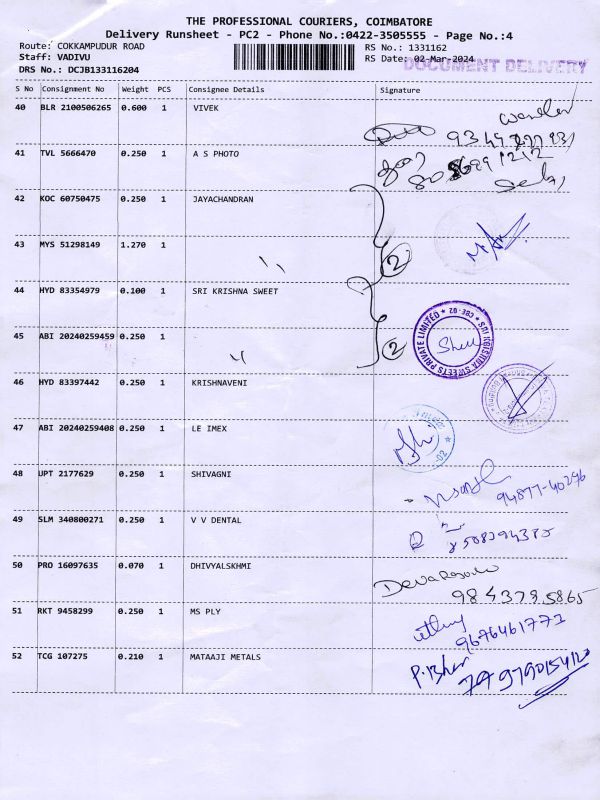 THE PROFESSIONAL COURIERS, COIMBATORE
Delivery Runsheet - PC2 - Phone No.:0422-3505555 - Page No.:4
Route: COKKAMPUDUR ROAD
RS No.: 1331162
Staff: VADIVU
RS Date: 02-Mar-2024
DOCUMENT DELIVERY
DRS No.: DCJB133116204
S No Consignment No Weight PCS Consignee Details Signature
40 BLR 2100506265 0.600 1 VIVEK
41 TVL 5666470 0.250 1 A S PHOTO
42 KOC 60750475 0.250 1 JAYACHANDRAN
43 MYS 51298149 1.270 1 〃
2
44 HYD 83354979 0.100 1 SRI KRISHNA SWEET
45 ABI 20240259459 0.250 1 〃
2
SRI KRISHNA SWEETS PRIVATE LIMITED * CBE-02 *
46 HYD 83397442 0.250 1 KRISHNAVENI
47 ABI 20240259408 0.250 1 LE IMEX
48 UPT 2177629 0.250 1 SHIVAGNI
94877-40296
49 SLM 340800271 0.250 1 V V DENTAL
50 PRO 16097635 0.070 1 DHIVYALSKHMI
9843795865
51 RKT 9458299 0.250 1 MS PLY
9676461771
52 TCG 107275 0.210 1 MATAAJI METALS